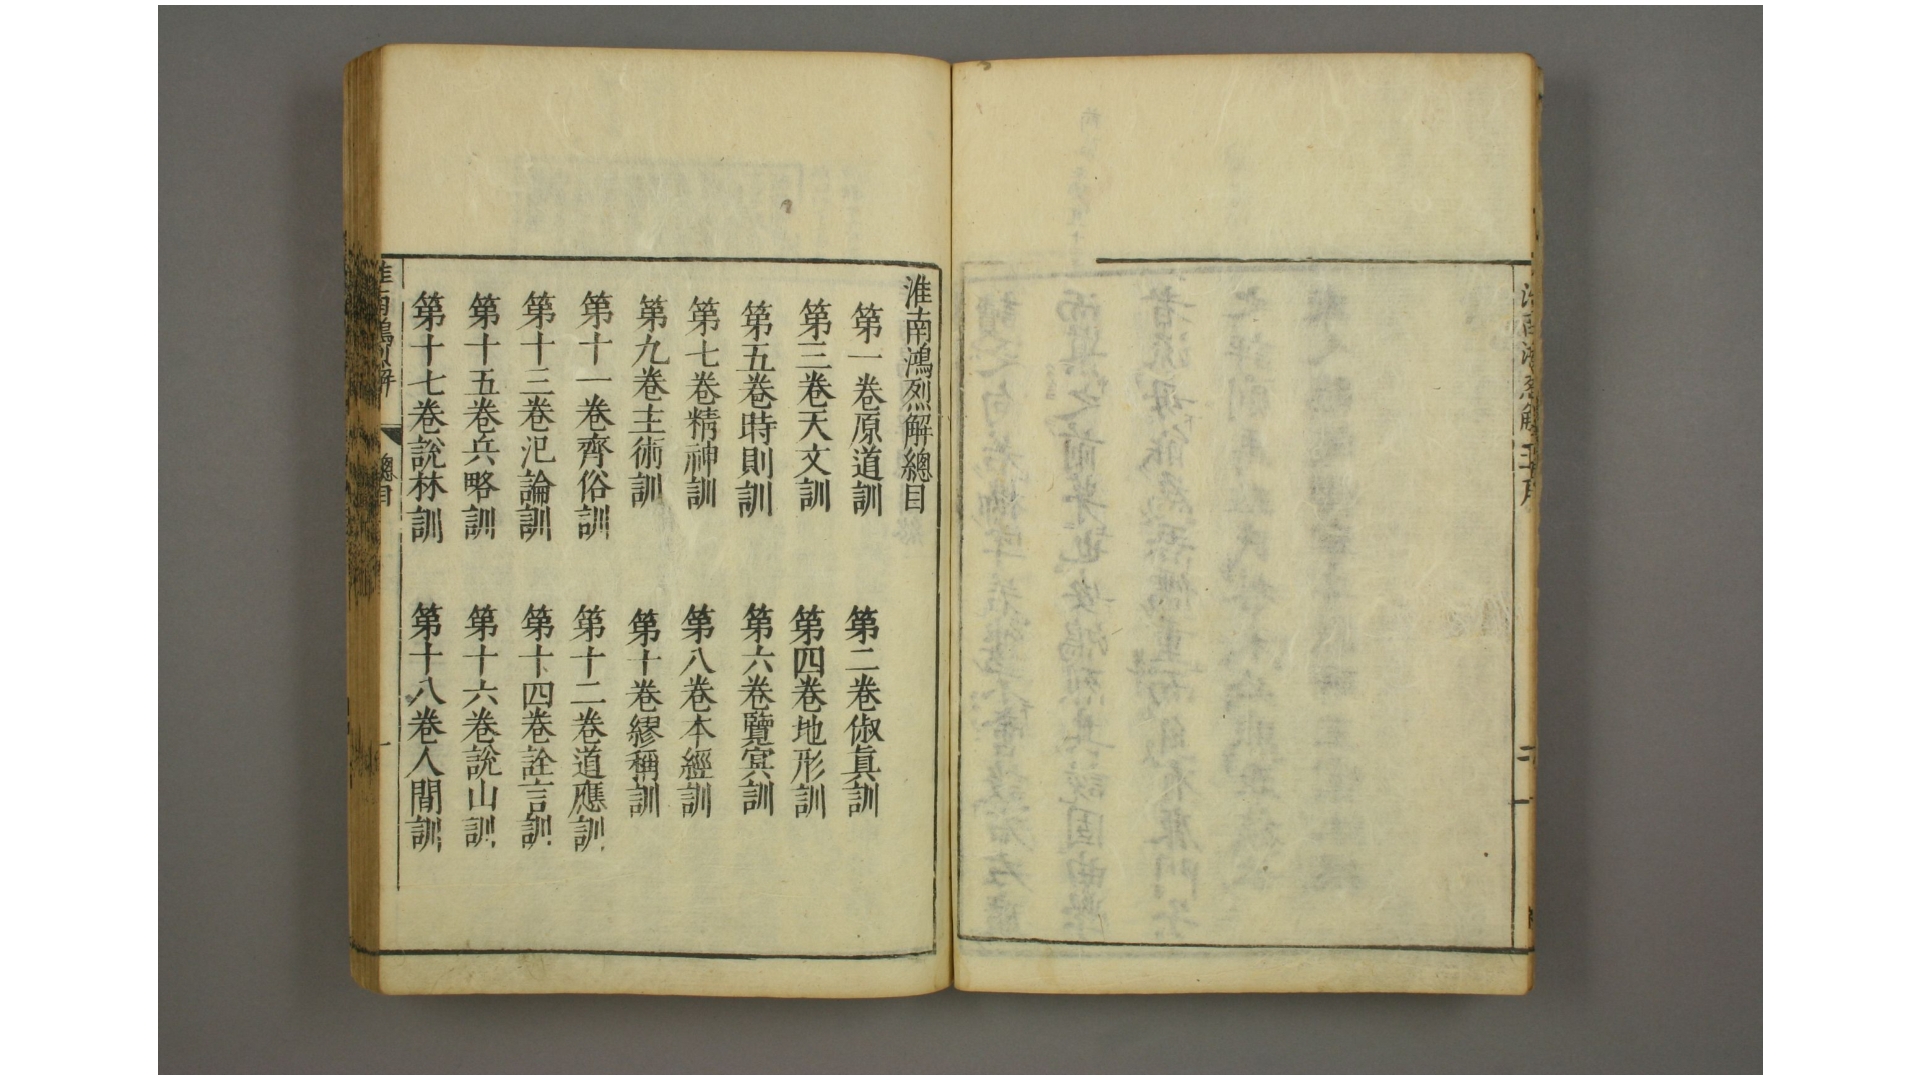 淮南鴻烈解總目
第一卷原道訓
第二卷俶眞訓
第三卷天文訓
第四卷地形訓
第五卷時則訓
第六卷覽冥訓
第七卷精神訓
第八卷本經訓
第九卷主術訓
第十卷繆稱訓
第十一卷齊俗訓
第十二卷道應訓
第十三卷氾論訓
第十四卷詮言訓
第十五卷兵略訓
第十六卷說山訓
第十七卷說林訓
第十八卷人間訓
總目
一